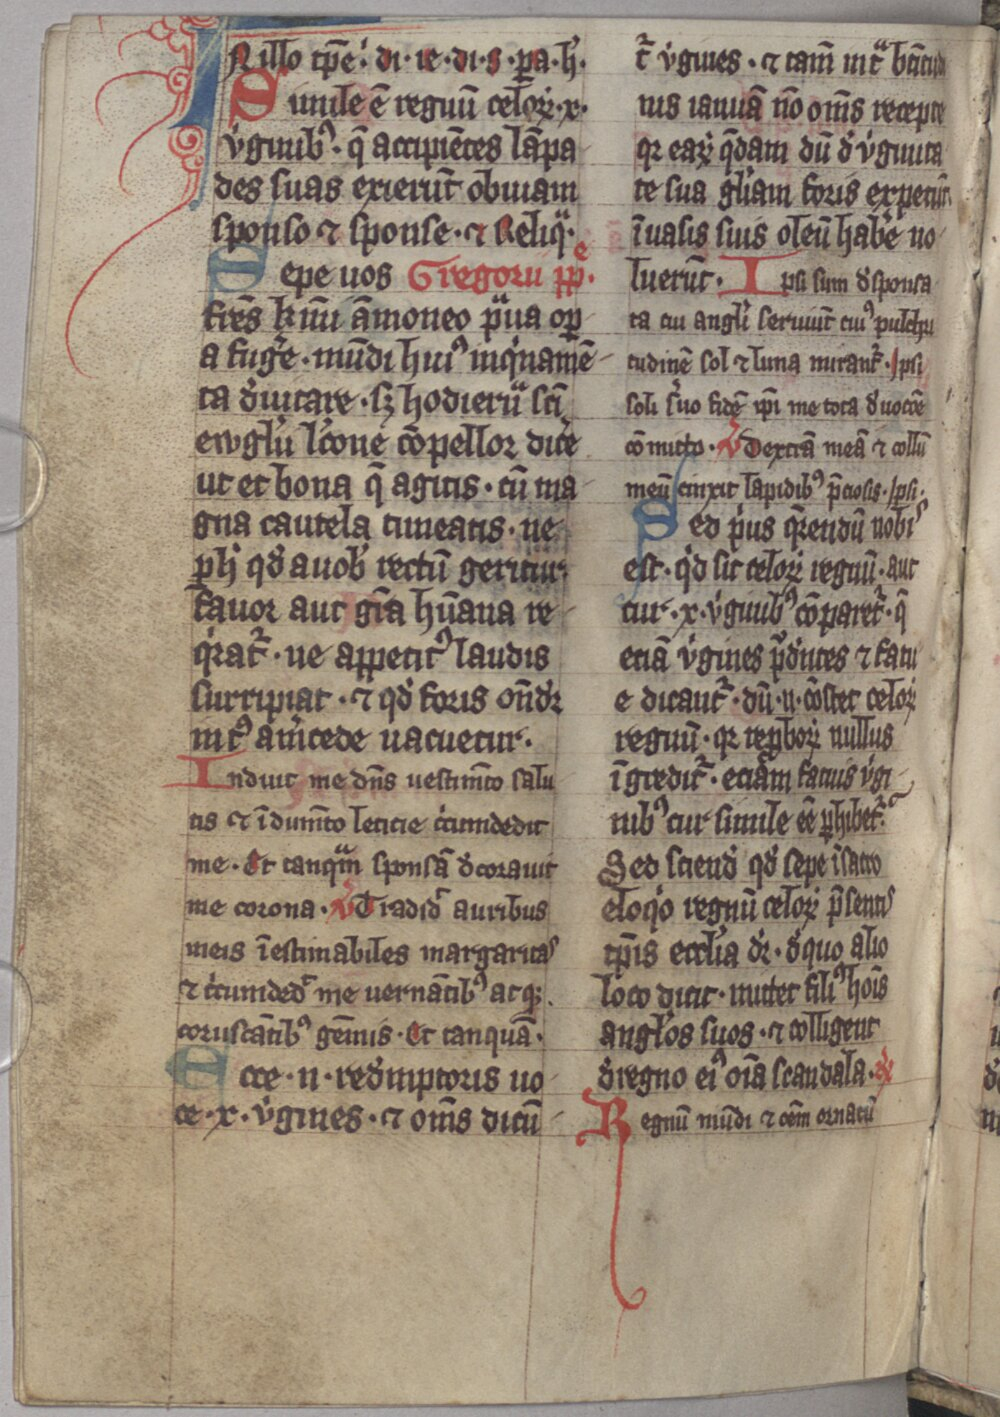 N illo tp̄e. di. ie. di. s. ꝑa. h̄.
Simile ē regnū celoꝝ. x.
v̓ginib᷒. q̄ accipiētes lāpa
des suas exierūt obuiam
sponso ⁊ sponse. ⁊ Reliq̄.
Sepe uos Gregorii pp̄e.
fr̄es km̄i āmoneo praua oꝑ
a fuge̓. mūdi hui᷒ inq̓namē
ta d̓uitare. sꝫ hodierna sc̄i
ewgl̓ii l̓cone cōpellor dice̓
ut et bona q̄ agitis. cū ma
gna cautela timeatis. ne
ꝑ h̓ qd̓ a uob̓ rectū geritur.
fauor aut gr̄a hūana re
q̓rat᷑. ne appetit᷒ laudis
surripiat. ⁊ qd̓ foris ōndr̄
int᷒ a m̓cede uacuetur.
Induit me dn̄s uestimēto salu
tis ⁊ īdumēto leticie c̓cumdedit
me. Et tanquam sponsā d̓corauit
me corona. V̓ Tradid᷑ auribus
meis īestimabiles margaritas
⁊ c̓cumded᷑ me uernātib᷒ atqꝫ
coruscātib᷒ gēmis. Et tanquā.
Ecce. n. red̓mptoris uo
ce. x. v̓gines. ⁊ om̄s dicū
t᷑ v̓gines. ⁊ tam̄ int̓
nis ianuā nō om̄s recepte
qr eaꝝ q̄dam dū d̓ v̓ginita
te sua gl̓iam foris expetūt
ī uasis suis oleū habe̓ no
luerūt. Ipsi sum d̓sponsa
ta cui angl̓i seruiūt cui᷒ pulchri
tudinē sol ⁊ luna mirant᷑. Ipsi
soli s̓uo fidē ip̄i me tota d̓uocōe
cōmitto. V̓ Dextrā meā ⁊ collū
meū cinxit lapidib᷒ p̄ciosis. Ipsi.
Sed p̓us q̄rendū nobis
est. qd̓ sit celoꝝ regnū. aut
cur. x. v̓ginib᷒ cōparet᷑. q̄
etiā v̓gines prud̓ntes ⁊ fatu
e dicant᷑. dū. n. cōstet celoꝝ
regnū. qr reꝓboꝝ nullus
īgredit᷑. etiam fatuis v̓gi
nib᷒ cur simile eē ꝑhibet᷑.
Sed sciend̓ qd̓ sepe ī sacro
eloq̓o regnū celoꝝ p̄sentis
tp̄is ecclīa dr̄. d̓ quo alio
loco dicit. mittet fili᷒ hoīs
angl̓os suos. ⁊ colligent
d̓ regno ei᷒ oīa scandala. R̓
Regnū mūdi ⁊ oēm ornatū